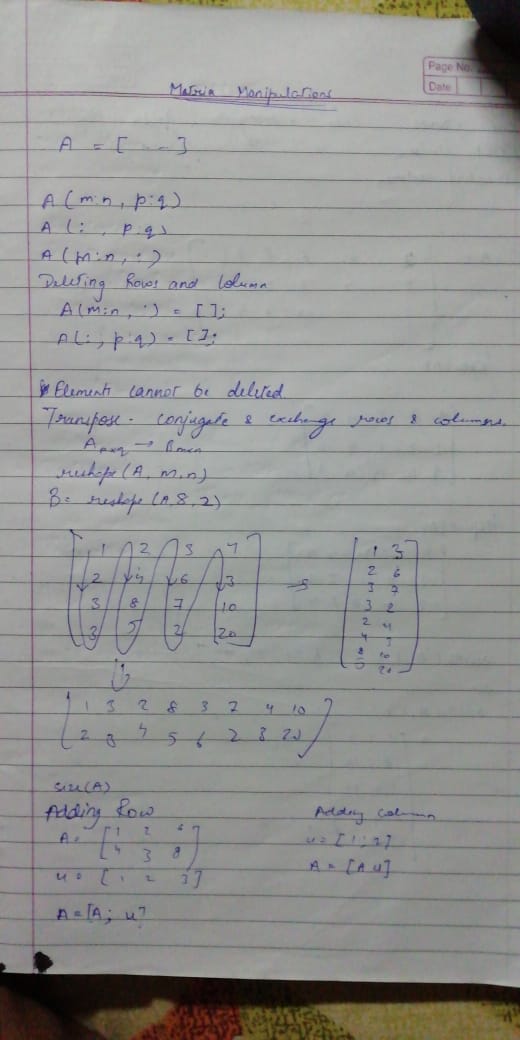 Page No.
Date
Matrix Manipulations
A = [ -- ]
A (m:n, p:q)
A (: , p:q)
A (m:n, :)
Deleting Rows and Column
A(m:n, :) = [ ];
A(:, p:q) = [ ];
Elements cannot be deleted
Transpose - conjugate & exchange rows & columns.
A pxq → B mxn
reshape (A, m, n)
B = reshape (A, 8, 2)
1 2 3 4 1 3
2 4 6 3 → 2 6
3 8 7 10 3 7
3 5 2 20 3 2
2 4
4 3
8 10
5 20
1 3 2 8 3 7 4 10
2 3 4 5 6 2 3 20
size(A)
Adding Row Adding column
A = [ 1 2 6 u = [1; 2]
4 3 8 ] A = [A u]
u = [ 1 2 3 ]
A = [A; u]